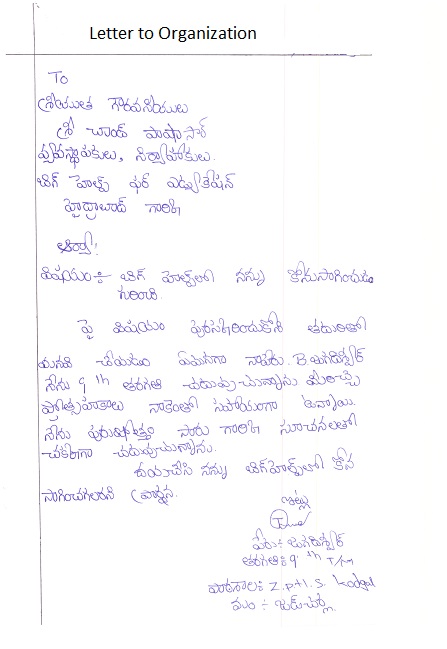 Letter to Organization
To
శ్రీయుత గౌరవనీయులు
శ్రీ చాంద్ పాషా సార్
వ్యవస్థాపకులు, నిర్వాహకులు.
బిగ్ హెల్ప్ ఫర్ ఎడ్యుకేషన్
హైద్రాబాద్ గారికి
ఆర్యా!
విషయం÷ బిగ్ హెల్ప్‌లో నన్ను కొనుసాగించుట
గురించి.
పై విషయం పురస్కరించుకొని తమరితో
మనవి చేయడం ఏమనగా నాపేరు. B జగదీశ్వర్
నేను 9 th తరగతి చదువుచున్నాను మీరిచ్చె
ప్రోత్సాహకాలు నాకెంతో సహాయంగా ఉన్నాయి.
నేను పురుషోత్తం సారు గారికి సూచనలతో
చక్కగా చదువుచున్నాను.
దయచేసి నన్ను బిగ్‌హెల్ప్‌లో కొన
సాగించగలరని ప్రార్థన.
ఇట్లు
పేరు÷ జగదీశ్వర్
తరగతి: 9 th T/M
పాఠశాల: Z.P.H.S. Kodgal
మం ÷ జడ్చర్ల.